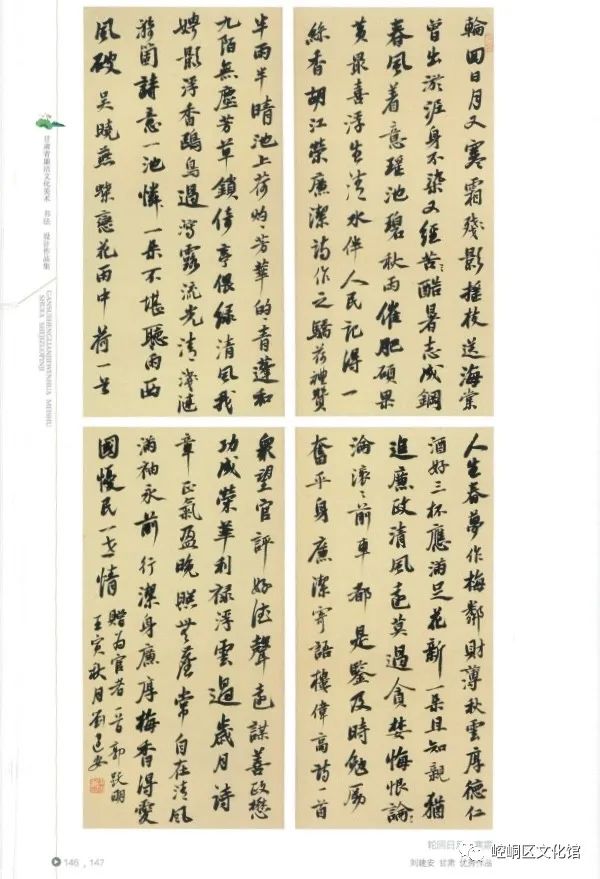 輪回日月又寒霜殘影摇枝送海棠
曾出淤泥身不染又經苦酷暑志成鋼
春風著意瑶池碧秋雨催肥碩果
黄最喜浮生清水伴人民記得一
絲香胡江榮廉潔詩作之驕荷禮贊
半雨半晴池上荷灼灼芳華的的音蓬和
九陌無塵芳草鎖倚亭偎緑清風我
娉影浮香鷗鳥過瀉露流光清淺漣
漪箇詩意一池憐一朵不堪聽雨西
風破 吴曉燕 蝶戀花雨中荷一首
人生春夢作梅鄰財薄秋雲厚德仁
酒好三杯應滿足花新一朵且知親猶
進廉政清風遠莫過貪婪悔恨論
淪滾滾前車都是鑒及時勉勵
奮平身廉潔寄語樓偉高詩一首
衆望官評好德聲遠謀善政懋
功成榮華利禄浮雲過歲月詩
章正氣盈晚照常自在清風
滿袖永前行潔身廉厚梅香得愛
國憂民一世情 贈為官者一首郭躍明
壬寅秋月劉建安
甘肃省廉洁文化美术 书法 设计作品集
GANSUSHENGLIANJIEWENHUA MEISHU
SHUFA SHEJIZUOPINJI
146 . 147
轮回日月又寒霜
刘建安 甘肃 优秀作品
崆峒区文化馆